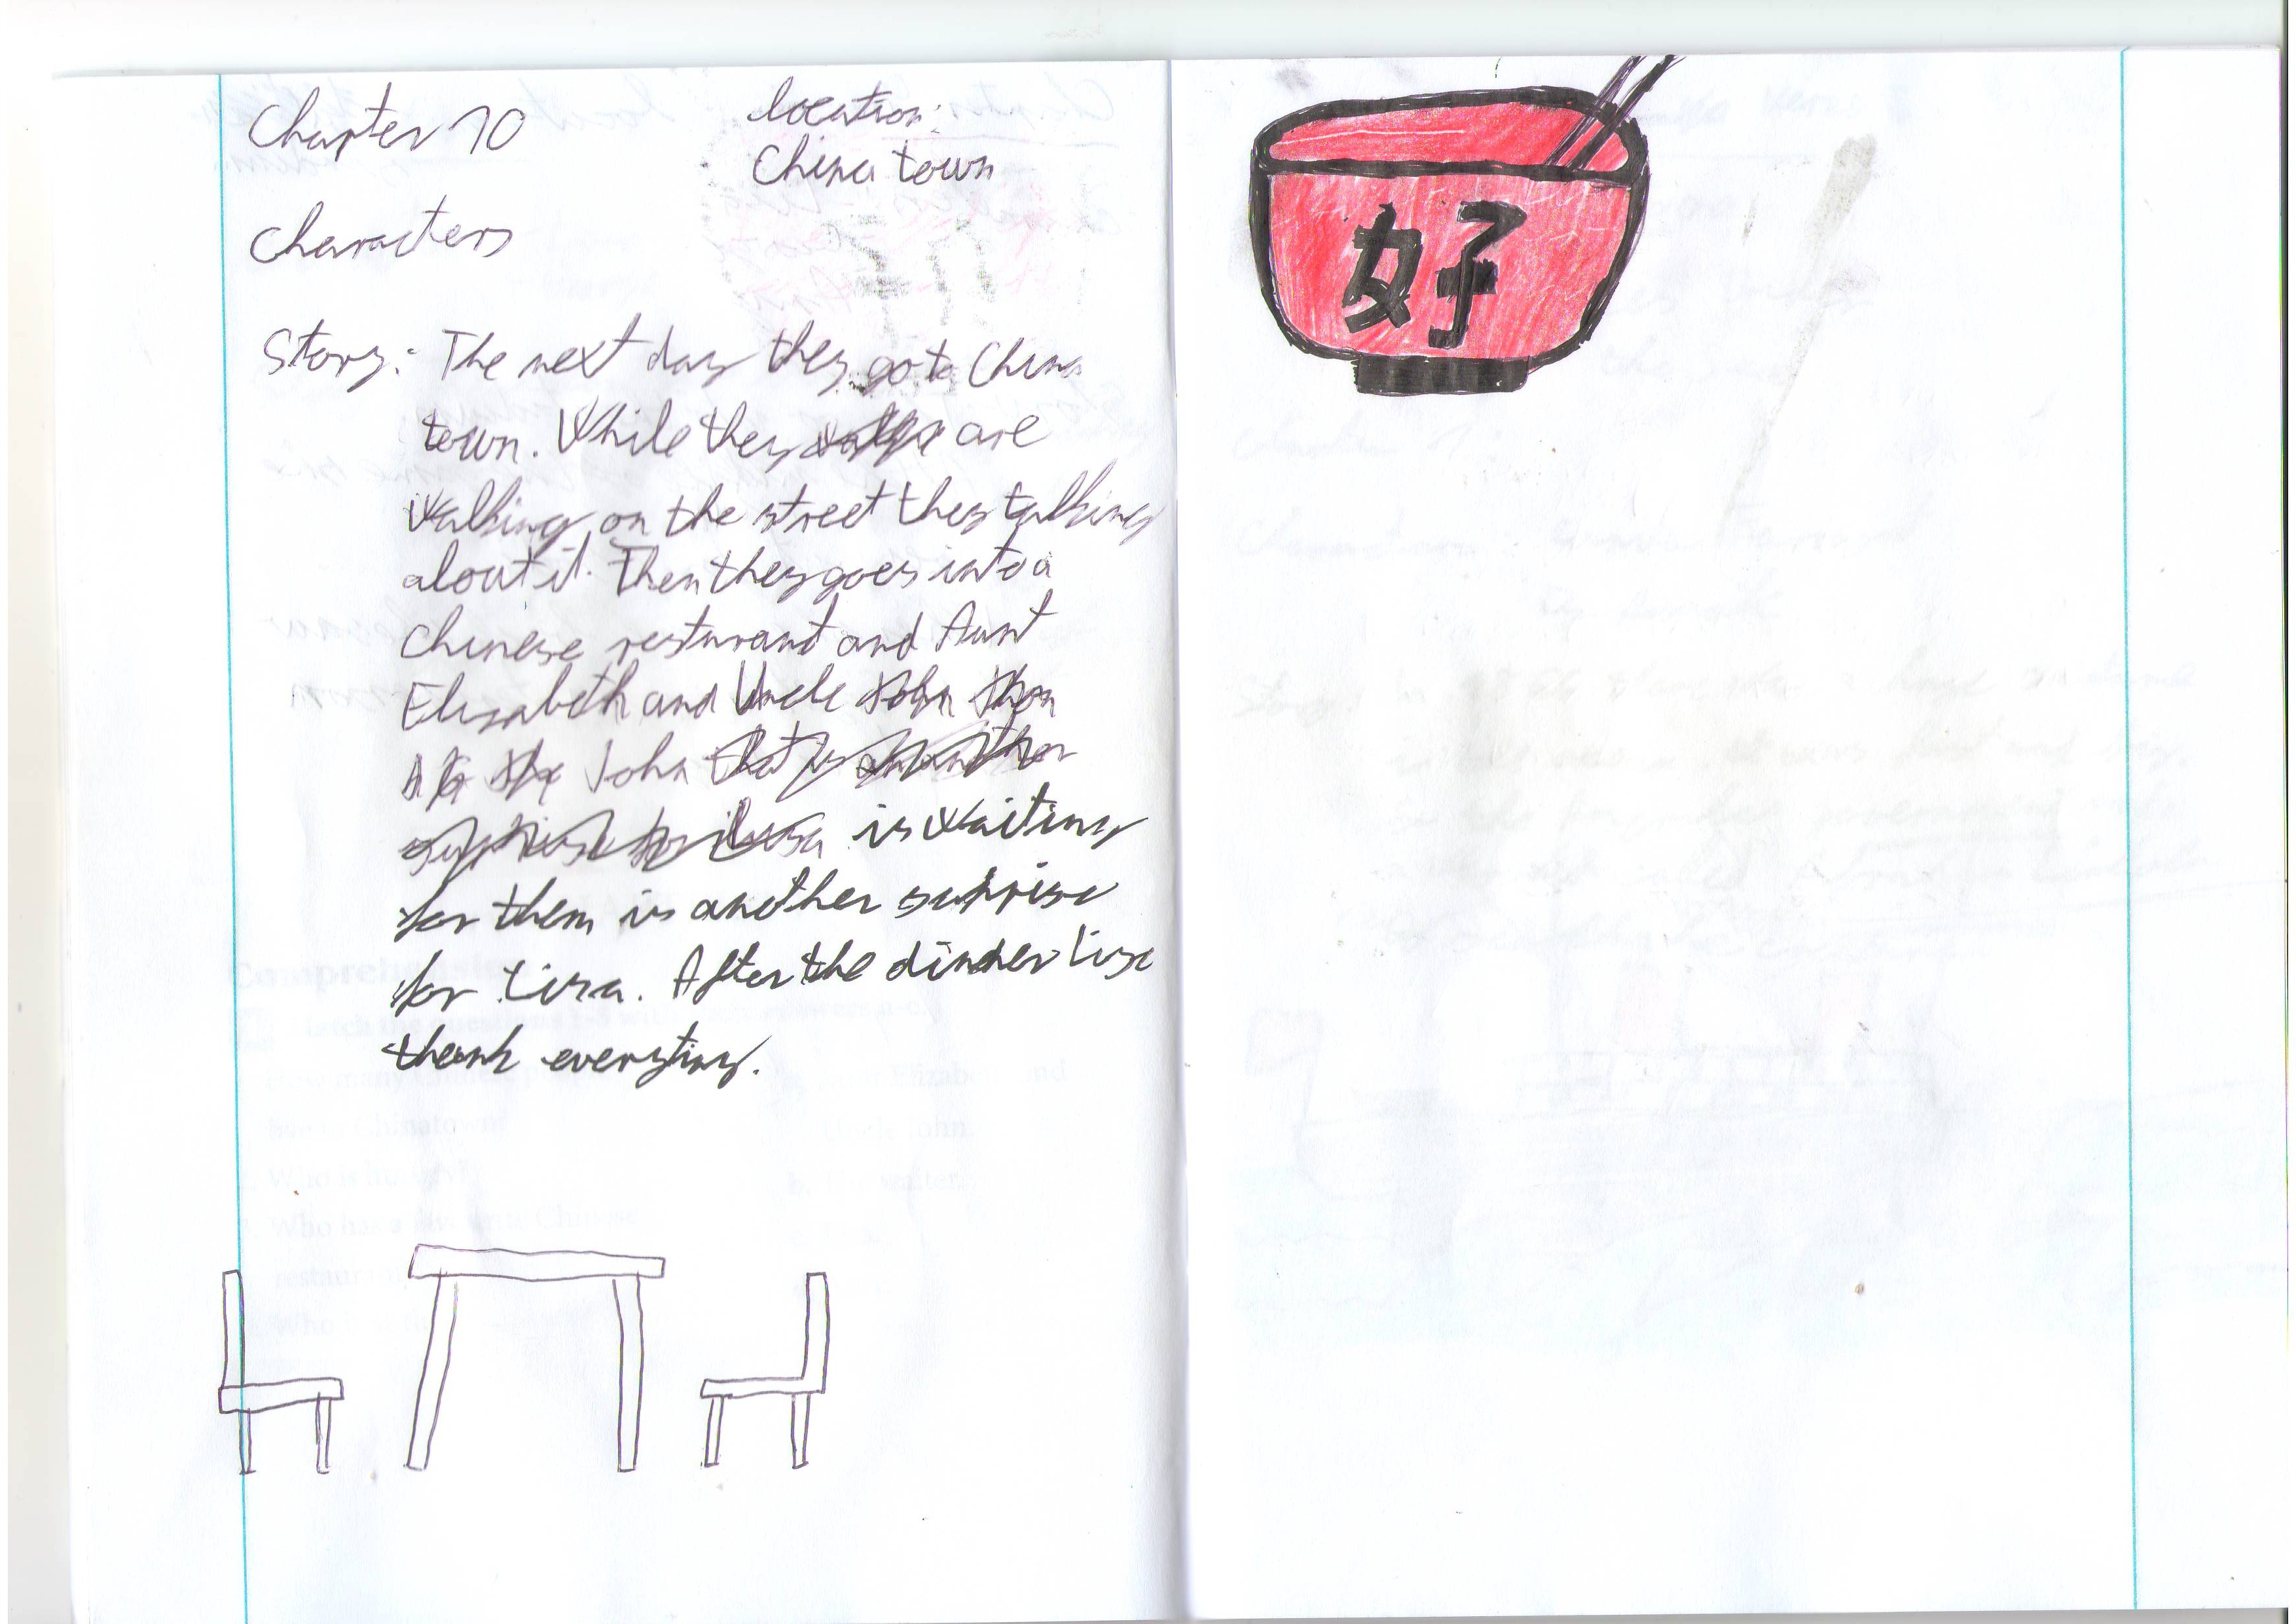 Chapter 10
location:
China town
Characters
Story: The next day they go to China
town. While they are
walking on the street they talking
about it. Then they goes into a
Chinese resturant and Aunt
Elizabeth and Uncle
John
is waiting
for them is another surprise
for Lisa. After the dinner Lisa
thank everyting.
好